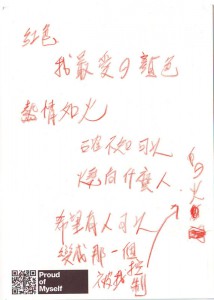 紅色
我最愛の顏色
熱情如火
不知可以
燒向什麼人
希望有人可以
變成那一個
被我控制
火
Proud
of
Myself